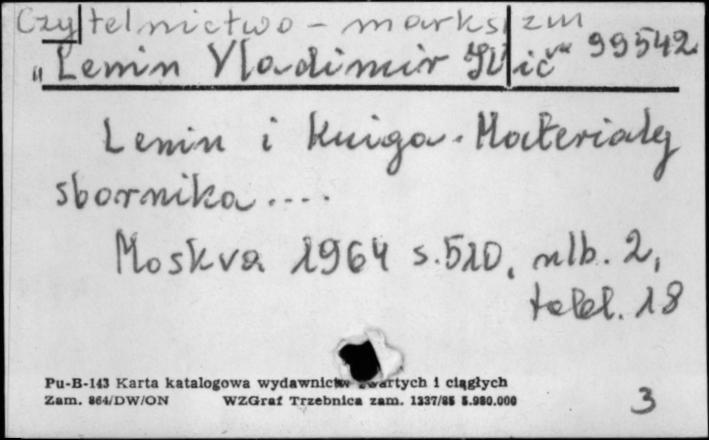 Czytelnictwo - marksizm
„Lenin Vladimir Il'ič" 99542
Lenin i kniga. Materiały
sbornika ....
Moskva 1964 s. 510, nlb. 2,
tabl. 18
Pu-B-143 Karta katalogowa wydawnictw zwartych i ciągłych
Zam. 864/DW/ON WZGraf Trzebnica zam. 1337/85 5.980.000
3